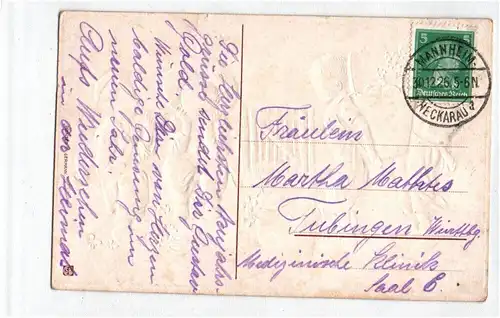 Die Herzlichsten Neujahrs-
grüsse sendet Dir Gustav
Gold.
Wünsche Dir von Herzen
baldige Genesung im
neuen Jahr.
Aufs Wiedersehen
in der
5
Deutsches Reich
MANNHEIM-
30.12.26. 5-6 N
NECKARAU
Fräulein
Martha Mathes
Tübingen Württbg.
Medizinische Klinik
Saal 6